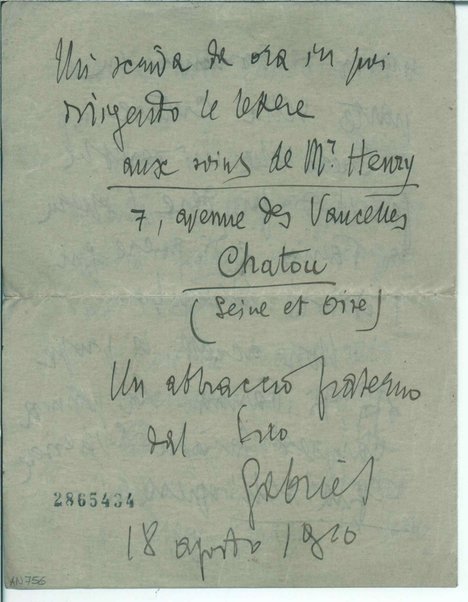 Mi scriva da ora in poi
dirigendo le lettere
aux soins de Mr Henry
7, avenue des Vaucelles
Chatou
(Seine et Oise)
Un abbraccio fraterno
dal suo
Gabriel
2865434
18 agosto 1910
AN756